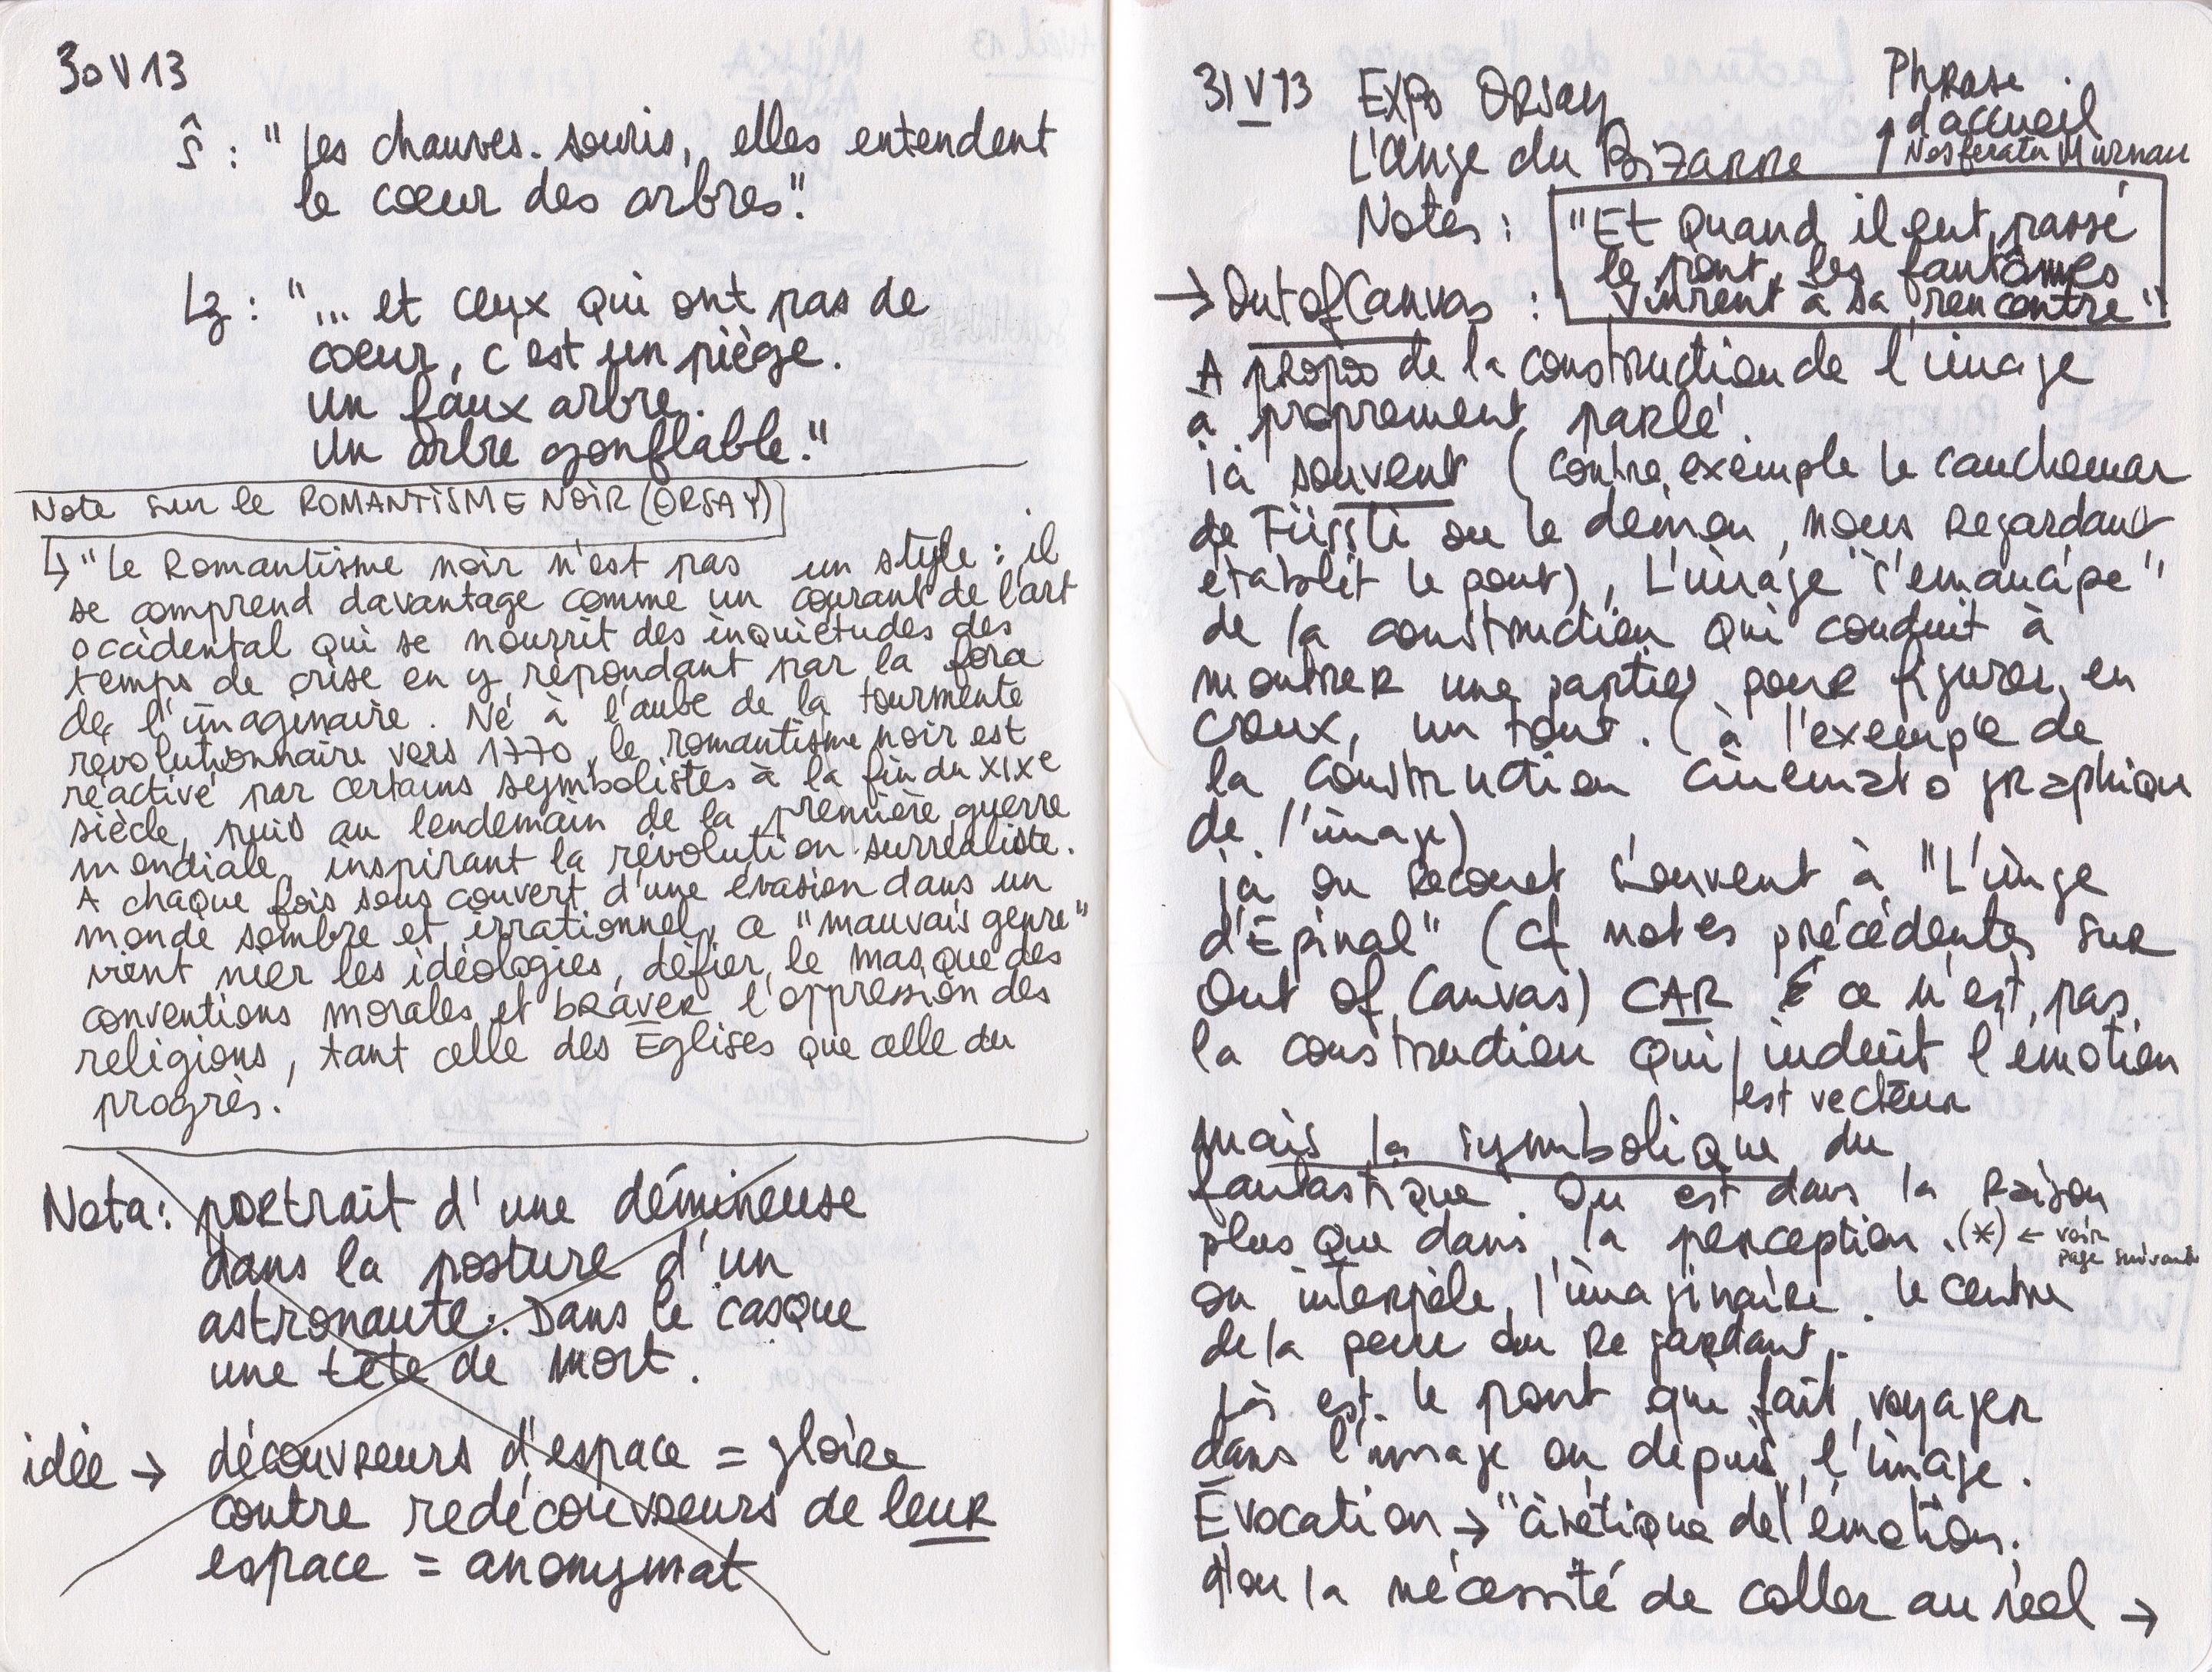 30 V 13
ŝ : "les chauves-souris, elles entendent
le cœur des arbres."
Lz : "... et ceux qui ont pas de
cœur, c'est un piège.
un faux arbre.
Un arbre gonflable."
Note sur le ROMANTISME NOIR (ORSAY)
↳ "Le Romantisme noir n'est pas un style : il
se comprend davantage comme un courant de l'art
occidental qui se nourrit des inquiétudes des
temps de crise en y répondant par la force
de l'imaginaire. Né à l'aube de la tourmente
révolutionnaire vers 1770, le romantisme noir est
réactivé par certains symbolistes à la fin du XIXe
siècle, puis au lendemain de la première guerre
mondiale, inspirant la révolution surréaliste.
A chaque fois sous couvert d'une évasion dans un
monde sombre et irrationnel, ce "mauvais genre"
vient nier les idéologies, défier le masque des
conventions morales et braver l'oppression des
religions, tant celle des Églises que celle du
progrès.
Nota : portrait d'une démineuse
dans la posture d'un
astronaute. Dans le casque
une tête de mort.
idée → découvreurs d'espace = gloire
contre redécouvreurs de leur
espace = anonymat
31 V 13 EXPO ORSAY
L'Ange du Bizarre
Phrase
d'accueil
↑ Nosferatu Murnau
Notes : "Et quand il eut passé
le pont, les fantômes
vinrent à sa rencontre"
→ Out of Canvas :
A propos de la construction de l'image
à proprement parlé.
ià souvent (contre exemple le cauchemar
de Füssli ou le démon, nous regardant
établit le pont), L'image "s'émancipe"
de la construction qui conduit à
montrer une partie pour figurer, en
creux, un tout. (à l'exemple de
la construction cinématographique
de l'image)
ià on recourt souvent à "L'image
d'Épinal" (cf notes précédentes sur
Out of Canvas) CAR ce n'est pas
la construction qui induit l'émotion
est vecteur
mais la symbolique du
fantastique. On est dans la raison
plus que dans la perception. (*) ← voir
page suivante
on interpèle l'imaginaire. le centre
de la peur du regardant.
là est le pont qui fait voyager
dans l'image ou depuis l'image.
Évocation → "cinétique de l'émotion.
d'ou la nécessité de coller au réel →